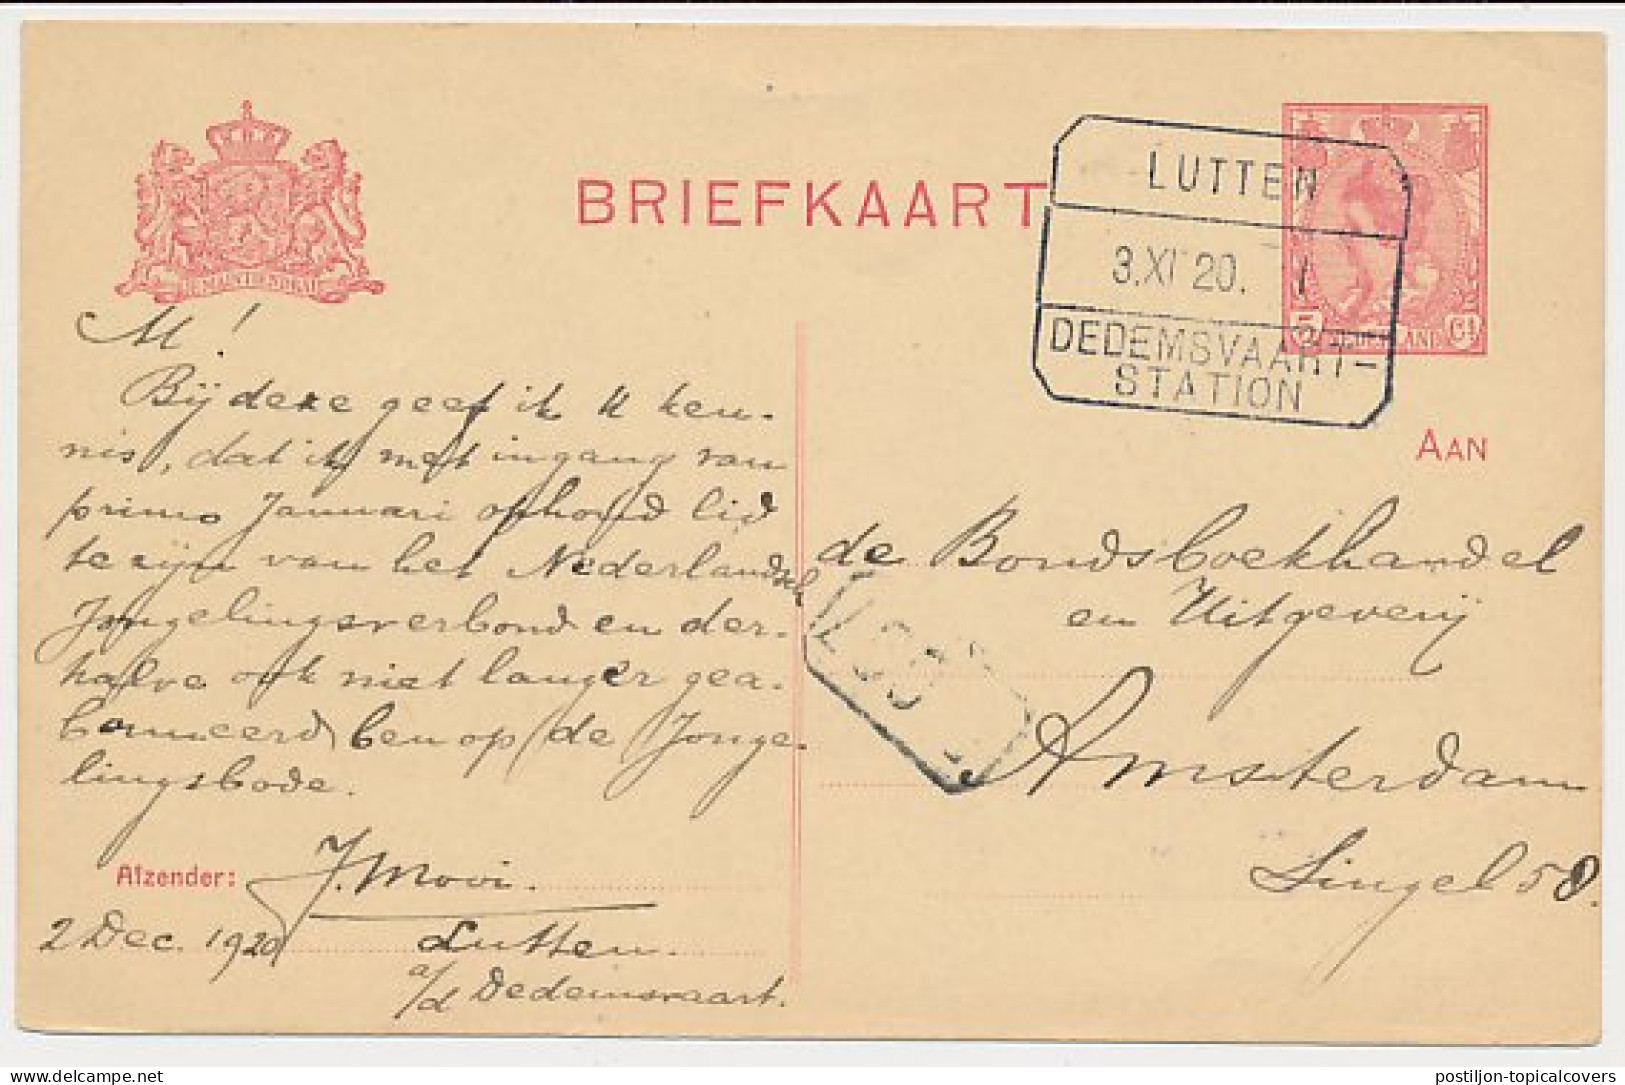 BRIEFKAART
LUTTEN
3.XI 20.
DEDEMSVAART-
STATION
5 NEDERLAND Ct
AAN
M!
Bij deze geef ik U ken-
nis, dat ik met ingang van
primo Januari ophoud lid
te zijn van het Nederlandsch
Jongelingsverbond en der-
halve ook niet langer gea-
bonneerd ben op de Jonge-
lingsbode.
Afzender: J. Mooi.
2 Dec. 1920 Lutten.
a/d Dedemsvaart.
de Bondsboekhandel
en Uitgeverij
Amsterdam
Singel 58.
postiljon-topicalcovers
delcampe.net